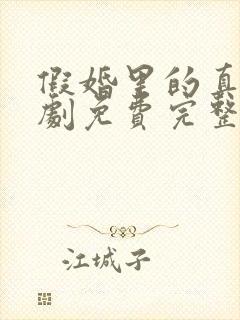 假婚里的真
劇免費完整
江城子